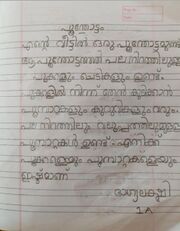 പൂന്തോട്ടം
എന്റെ വീട്ടിൽ ഒരു പൂന്തോട്ടമുണ്ട്
ആ പൂന്തോട്ടത്തിൽ പല നിറത്തിലുള്ള
പൂക്കളും ചെടികളും ഉണ്ട്.
പൂക്കളിൽ നിന്ന് തേൻ കുടിക്കാൻ
പൂമ്പാറ്റകളും കുരുവികളും വരും.
പല നിറത്തിലും വലുപ്പത്തിലുമുള്ള
പൂമ്പാറ്റകൾ ഉണ്ട്. എനിക്ക്
പൂക്കളെയും പൂമ്പാറ്റകളെയും
ഇഷ്ടമാണ്
ഭാഗ്യലക്ഷ്മി
1A